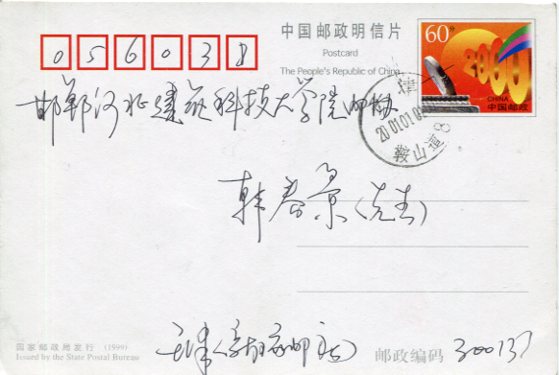 056038
中国邮政明信片
Postcard
The People's Republic of China
60分
2000
CHINA
中国邮政
津
2001.01.01
鞍山道8
邯郸河北建筑科技大学院邮协
韩春景(先生)
天津
国家邮政局发行 (1999)
Issued by the State Postal Bureau
邮政编码 300137